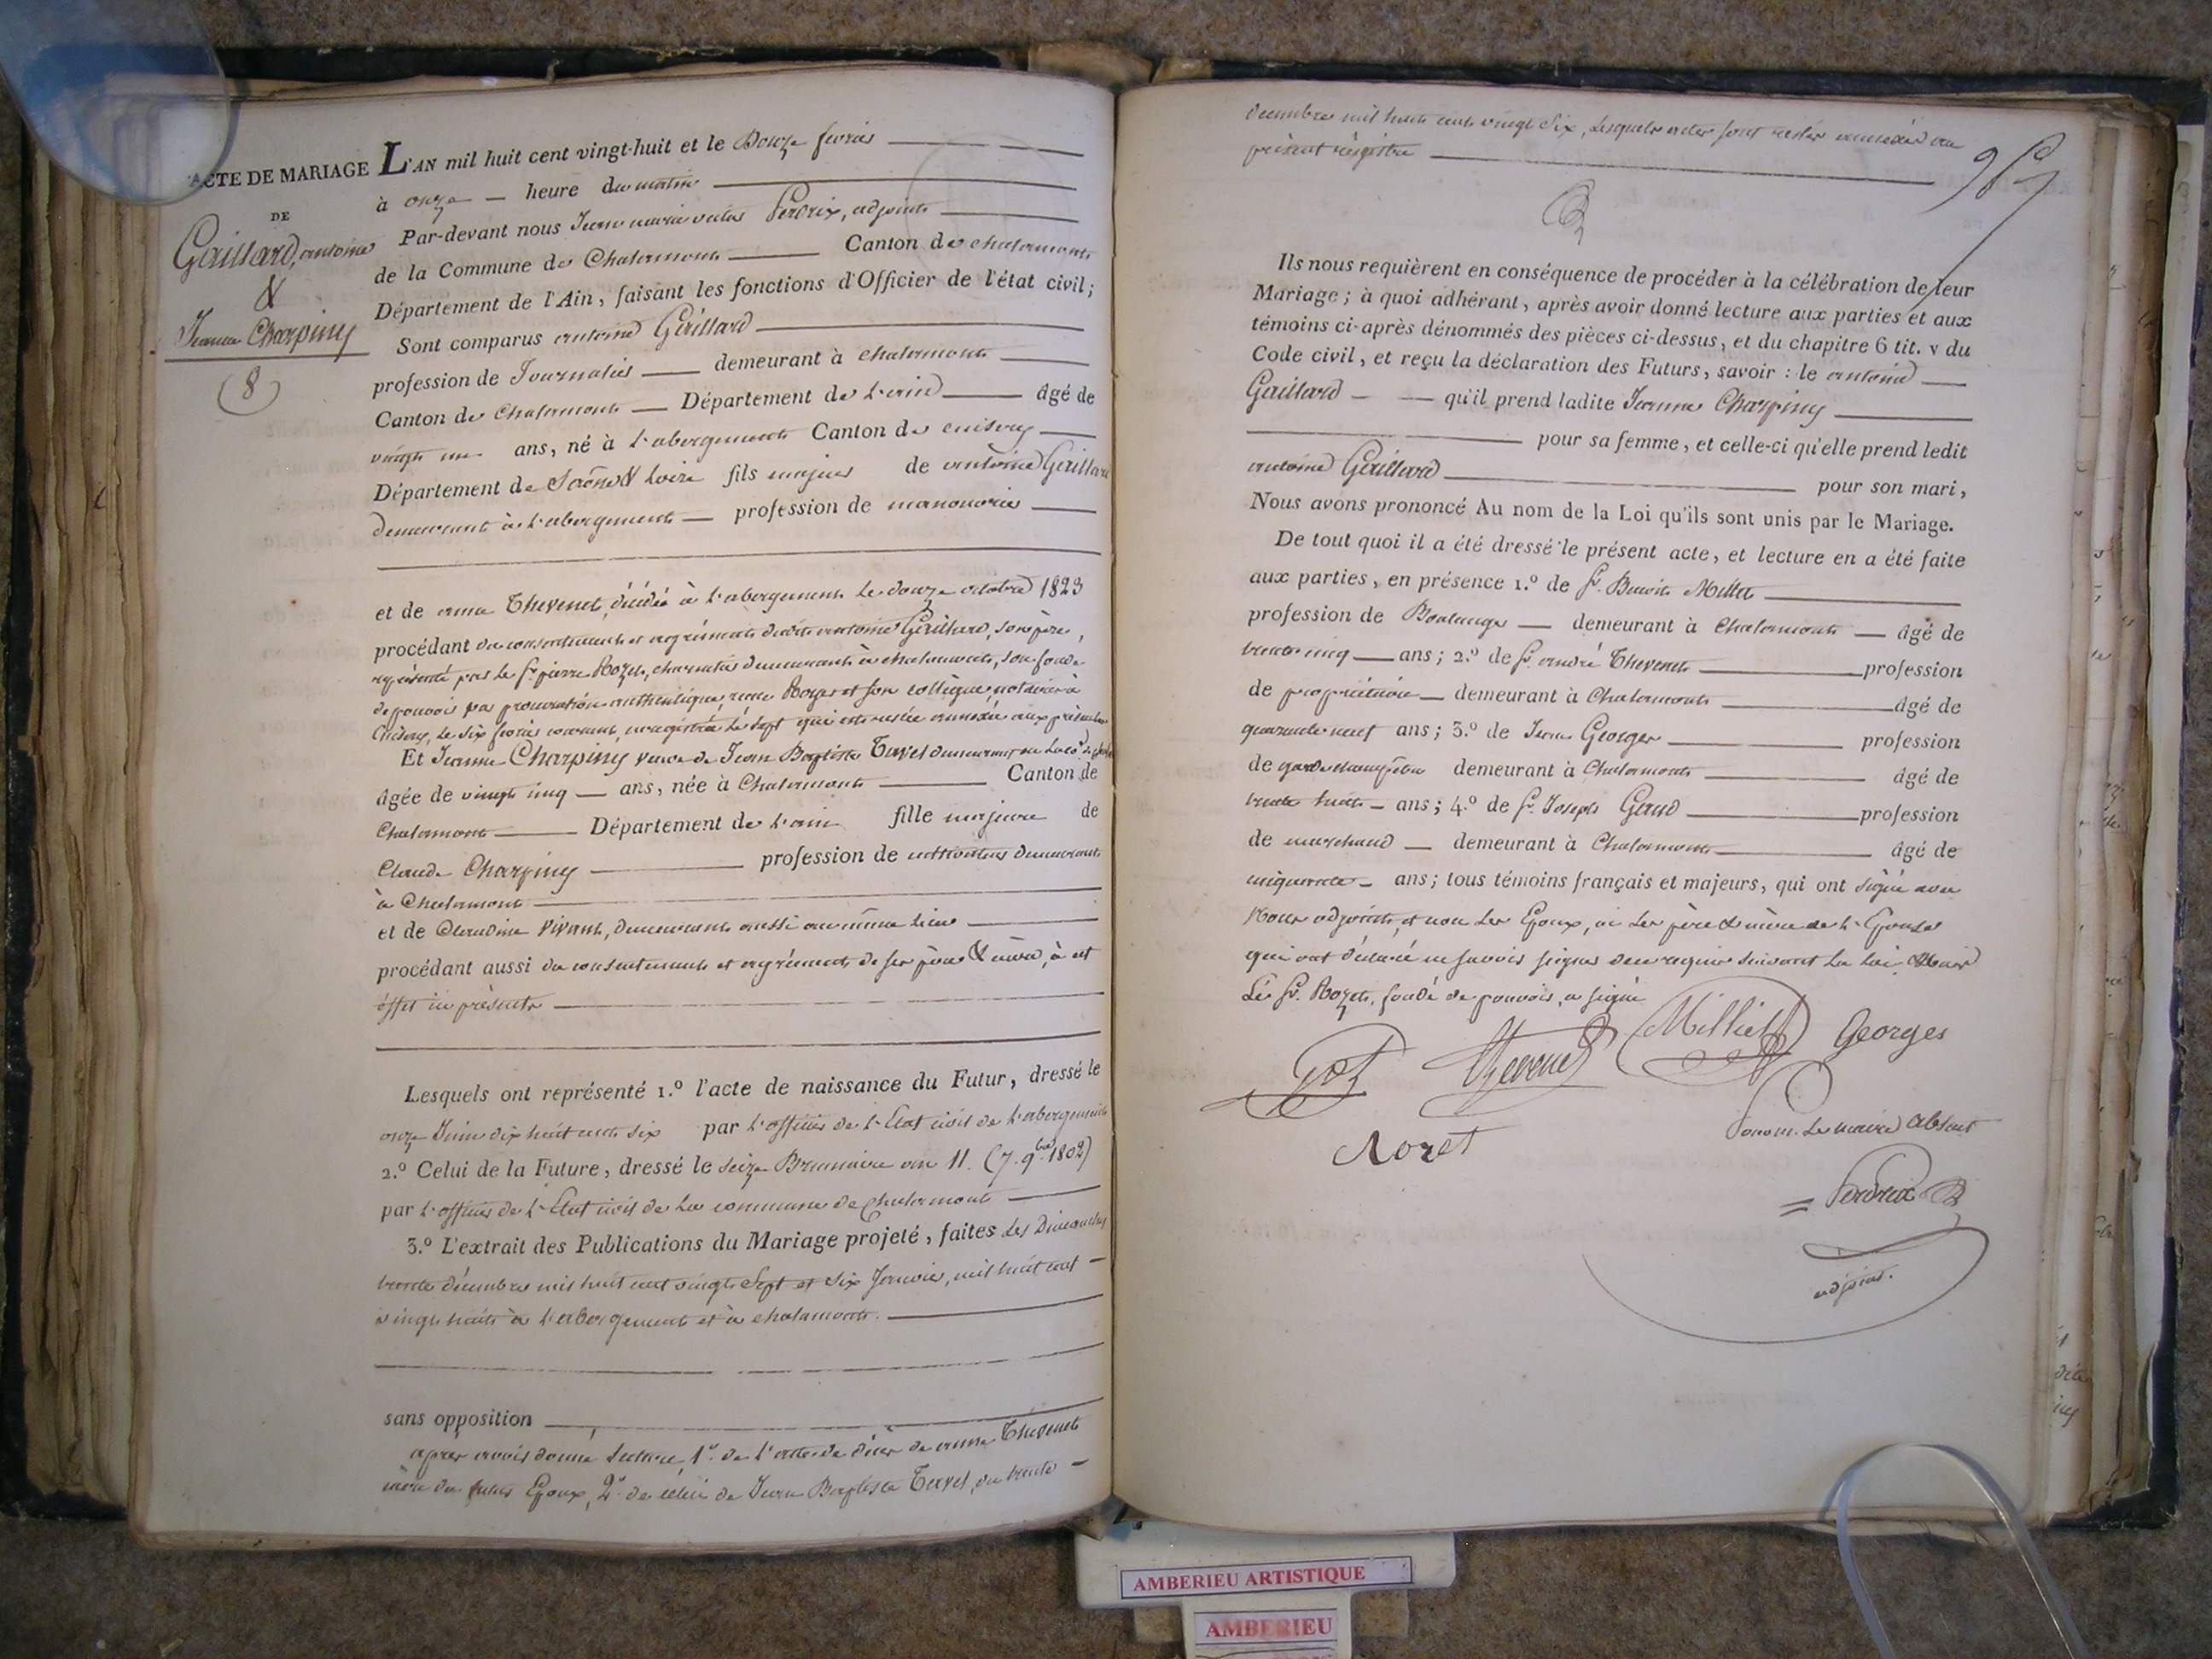 ACTE DE MARIAGE
DE
Gaillard, antoine
&
Jeanne Charpiny
(8)
L'AN mil huit cent vingt-huit et le Douze fevrier
à onze heure du matin
Par-devant nous Jean marie Perdrix, adjoint
de la Commune de Chalamont Canton de chalamont
Département de l'Ain, faisant les fonctions d'Officier de l'état civil;
Sont comparus antoine Gaillard
profession de Journalier demeurant à chalamont
Canton de Chalamont Département de l'ain âgé de
vingt un ans, né à l'abergement Canton de cuisery
Département de Saône & Loire fils majeur de antoine Gaillard
demeurant à l'abergement profession de manouvrier
et de anne Thevenet, décédée à l'abergement le douze octobre 1823
procédant du consentement et agrément dudit antoine Gaillard, son père,
représenté par le Sr. pierre Rozet, charcutier demeurant à chalamont, son fondé
de pouvoir par procuration authentique, reçue Royer et son collègue, notaires à
Cuisery, le six fevrier courant, enregistrée le sept qui est restée annexée aux présentes
Et Jeanne Charpiny veuve de Jean Baptiste Tavel demeurant
âgée de vingt cinq ans, née à Chalamont Canton de
Chalamont Département de l'ain fille majeure de
Claude Charpiny profession de cultivateur demeurant
à Chalamont
et de Claudine Vivant, demeurant aussi au même lieu
procédant aussi du consentement et agrément de ses père & mère, à cet
effet ici présents
Lesquels ont représenté 1.º l'acte de naissance du Futur, dressé le
onze Juin dix huit cent six par l'officier de l'Etat civil de l'abergement
2.º Celui de la Future, dressé le seize Brumaire an 11. (7. 9bre 1802)
par l'officier de l'Etat civil de la commune de Chalamont
3.º L'extrait des Publications du Mariage projeté, faites les Dimanches
trente décembre mil huit cent vingt Sept et six Janvier, mil huit cent
vingt huit à l'abergement et à chalamont.
sans opposition
après avoir donné lecture, 1º. de l'acte de décès de anne Thevenet
mère du futur Epoux, 2º. de celui de Jean Baptiste Tavel, du trente
décembre mil huit cent vingt Six, lesquels actes sont restés annexés au
présent registre
Ils nous requièrent en conséquence de procéder à la célébration de leur
Mariage; à quoi adhérant, après avoir donné lecture aux parties et aux
témoins ci-après dénommés des pièces ci-dessus, et du chapitre 6 tit. v du
Code civil, et reçu la déclaration des Futurs, savoir: le antoine
Gaillard qu'il prend ladite Jeanne Charpiny
pour sa femme, et celle-ci qu'elle prend ledit
antoine Gaillard pour son mari,
Nous avons prononcé Au nom de la Loi qu'ils sont unis par le Mariage.
De tout quoi il a été dressé le présent acte, et lecture en a été faite
aux parties, en présence 1.º de Sr. Benoit Millet
profession de Boulanger demeurant à Chalamont âgé de
trente cinq ans; 2.º de Sr. andré Thevenet profession
de propriétaire demeurant à Chalamont âgé de
quarante neuf ans; 3.º de Jean Georges profession
de garde champêtre demeurant à Chalamont âgé de
trente huit ans; 4.º de Sr. Joseph Gaud profession
de marchand demeurant à Chalamont âgé de
cinquante ans; tous témoins français et majeurs, qui ont signé avec
Nous adjoint, et non les Epoux, ni les père & mère de l'Epouse
qui ont déclaré ne savoir signer de ce requis suivant la loi. Mais
Le Sr. Rozet, fondé de pouvoir, a signé
Thevenet Milliet Georges
Rozet
Pour M. Le maire absent
Perdrix
adjoint.
AMBERIEU ARTISTIQUE
AMBERIEU